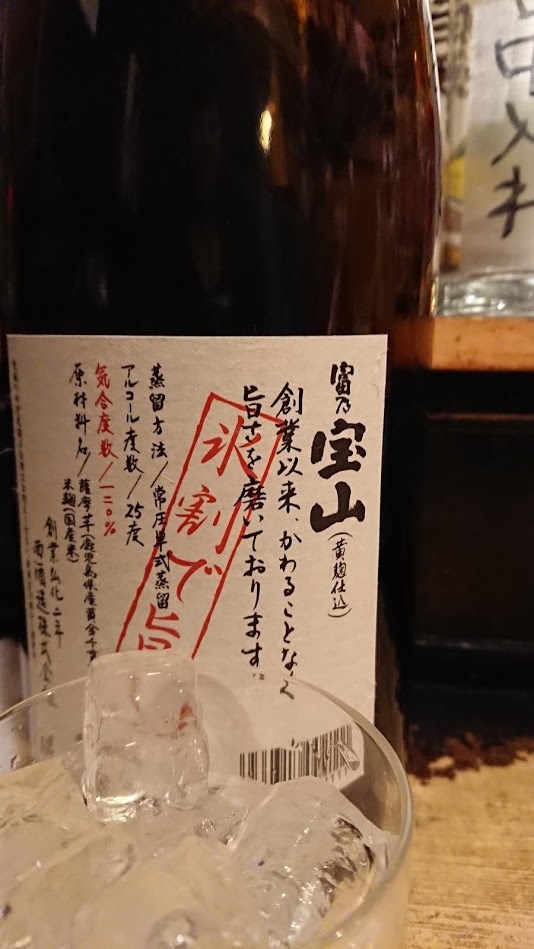 富乃
宝山
(黄麹仕込)
創業以来、かわることなく
旨さを磨いております。
氷割で旨
蒸留方法/常圧単式蒸留
アルコール度数/25度
気合度数/一二〇%
原材料名/薩摩芋(鹿児島県産黄金千
米麹(国産米)
創業弘化二年
西酒造株式会社
入れ